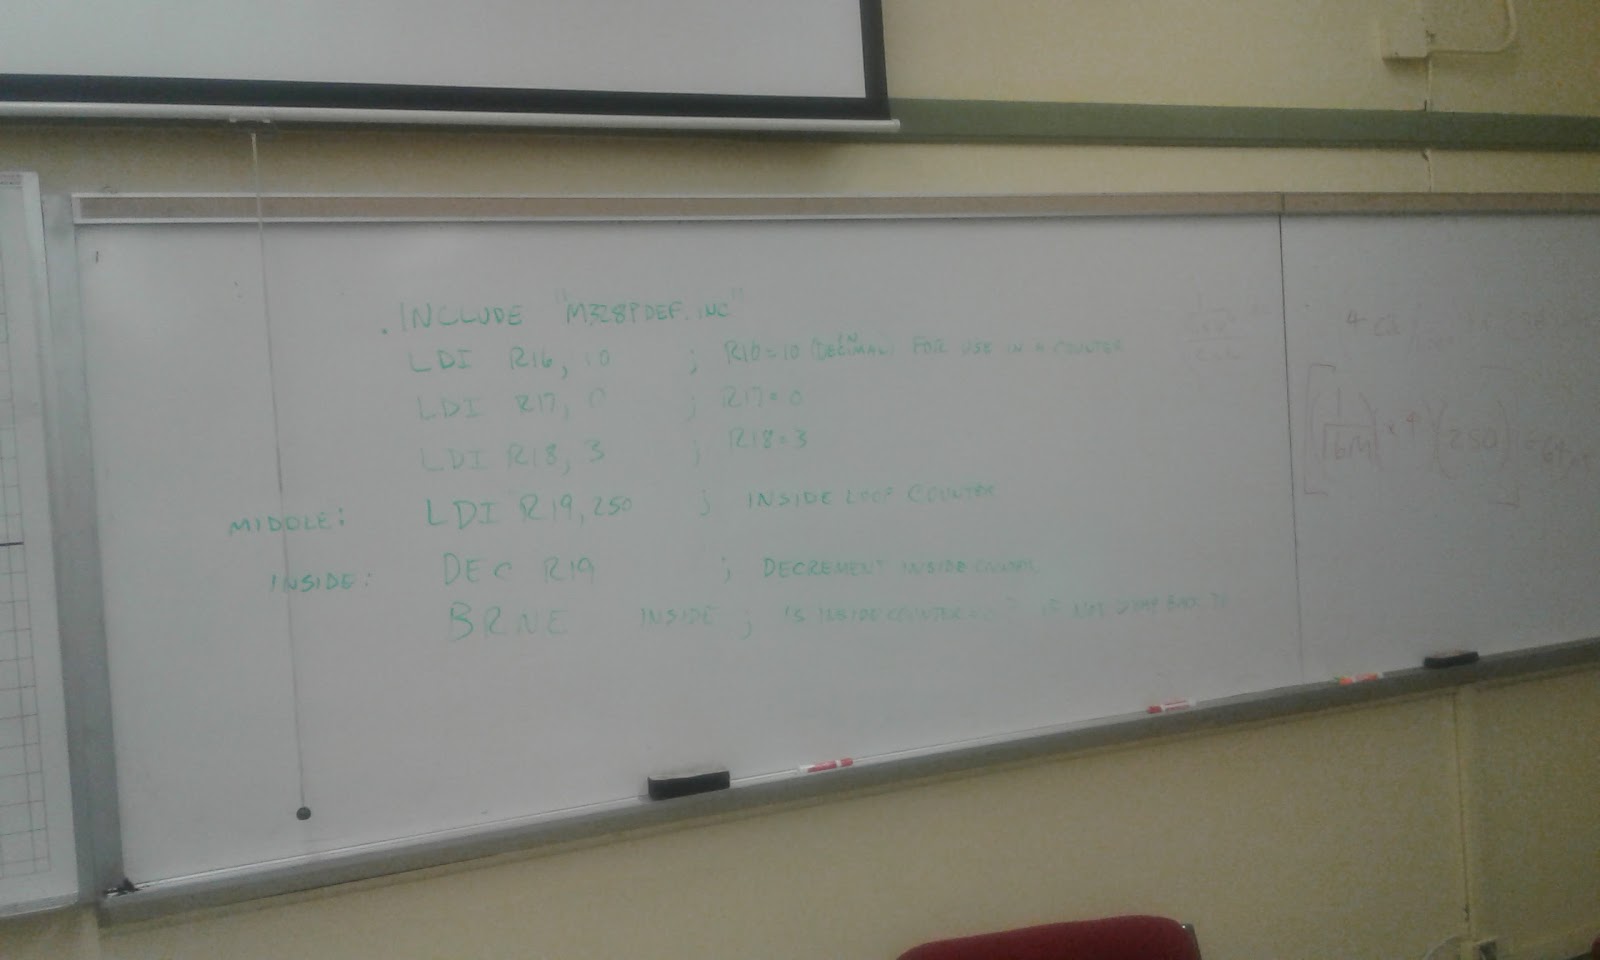 .INCLUDE "M328PDEF.INC"
LDI R16, 10 ; R16=10 (IN DECIMAL) FOR USE IN A COUNTER
LDI R17, 0 ; R17=0
LDI R18, 3 ; R18=3
MIDDLE: LDI R19, 250 ; INSIDE LOOP COUNTER
INSIDE: DEC R19 ; DECREMENT INSIDE
BRNE INSIDE ; IS INSIDE COUNTER = ? IF NOT JUMP BACK TO
4
[(1/16M) x 4)(250)] = 64